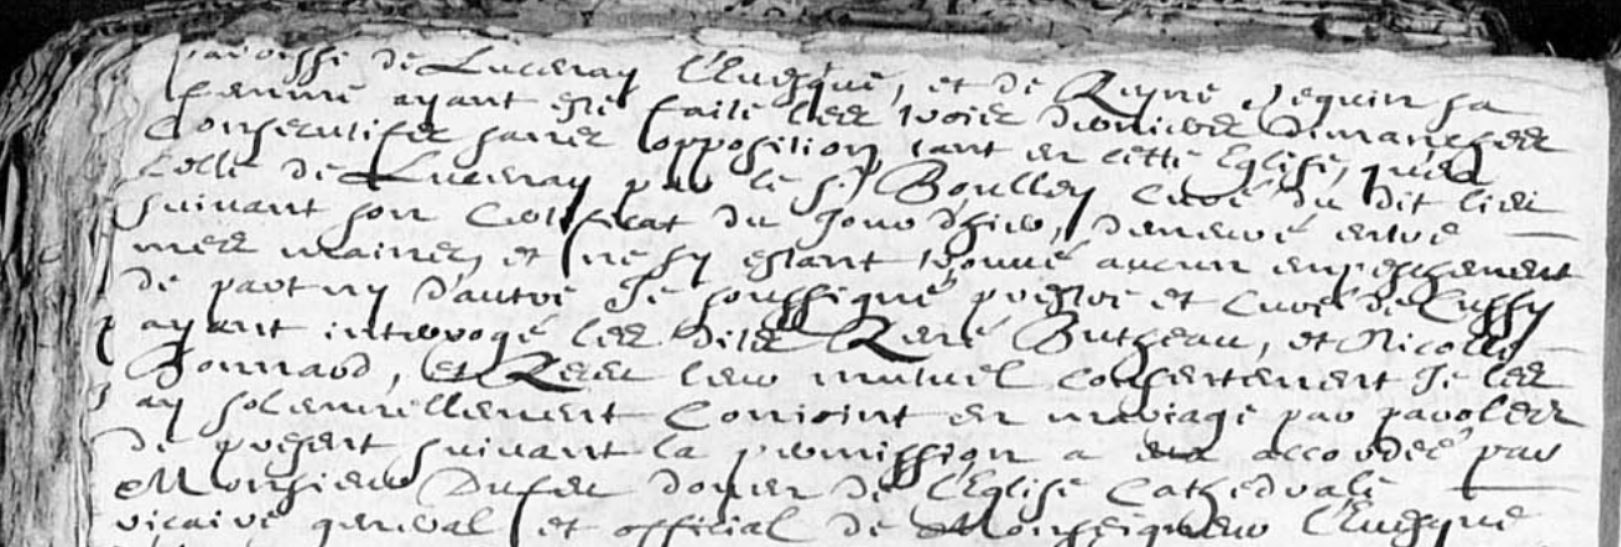 paroisse de Lucenay l'Evesque, et de Reyne Sequin sa
femme ayant esté faite les trois derniers dimanches
Consecutifes sanes opposition, tant en cette Eglise, qu'en
Celle de Lucenay par le sr Boulley Curé du dit lieu
suivant son Certificat du Jour d'hier, demeuré entre
mes mains, et ne sy estant trouvé aucun empeschement
de part ny d'autre Je soussigné prestre et Curé de Cussy
ayant interrogé les dits René Butheau, et Nicolle
Bonnard, et Receu leur mutuel consentement Je les
ay solennellement Conjoint en mariage par parolles
de present suivant la permission a eux accordée par
Monsieur doyen de l'Eglise Cathedrale
vicaire general et official de Monseigneur l'Evesque